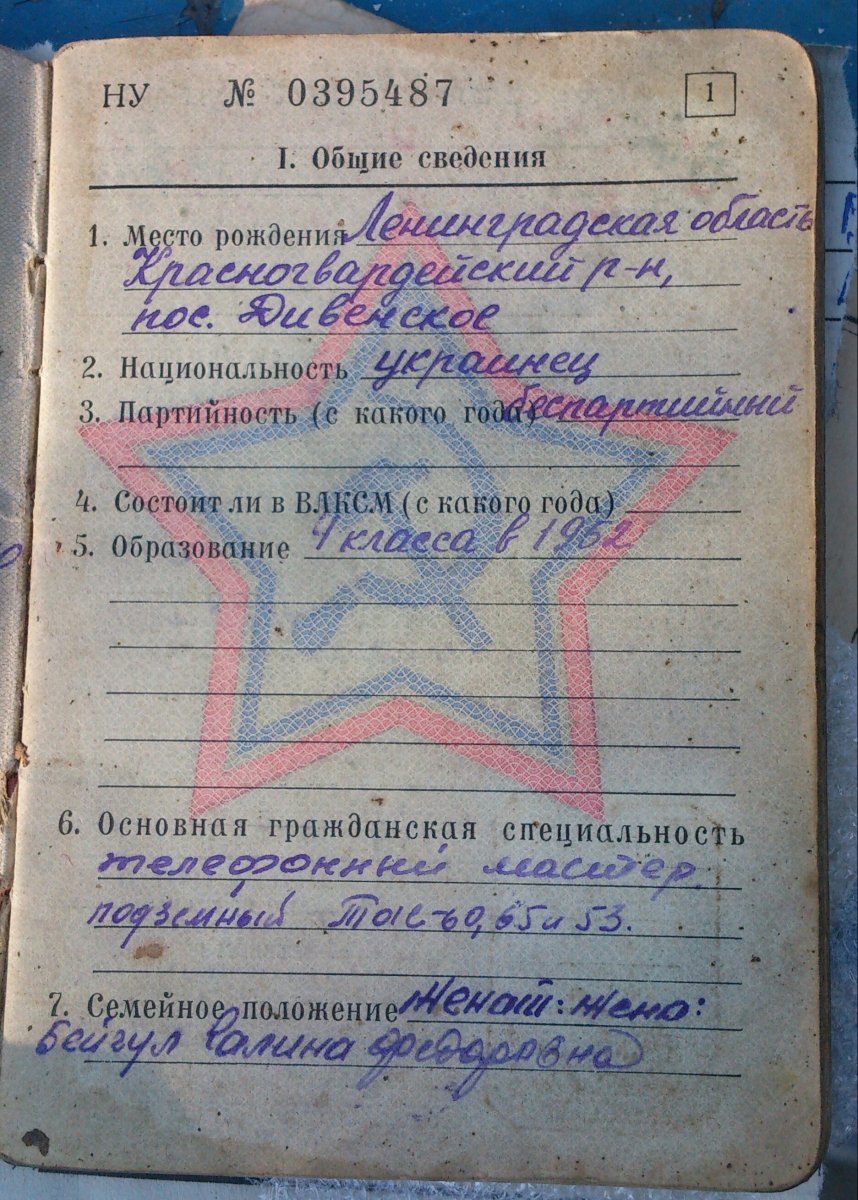 НУ № 0395487 1
I. Общие сведения
1. Место рождения Ленинградская область
Красногвардейский р-н,
пос. Дивенское
2. Национальность украинец
3. Партийность (с какого года) беспартийный
4. Состоит ли в ВЛКСМ (с какого года)
5. Образование 4 класса в 1952
6. Основная гражданская специальность
телефонный мастер,
подземный 65 и 53.
7. Семейное положение Женат: жена:
Бейгул Галина Федоровна